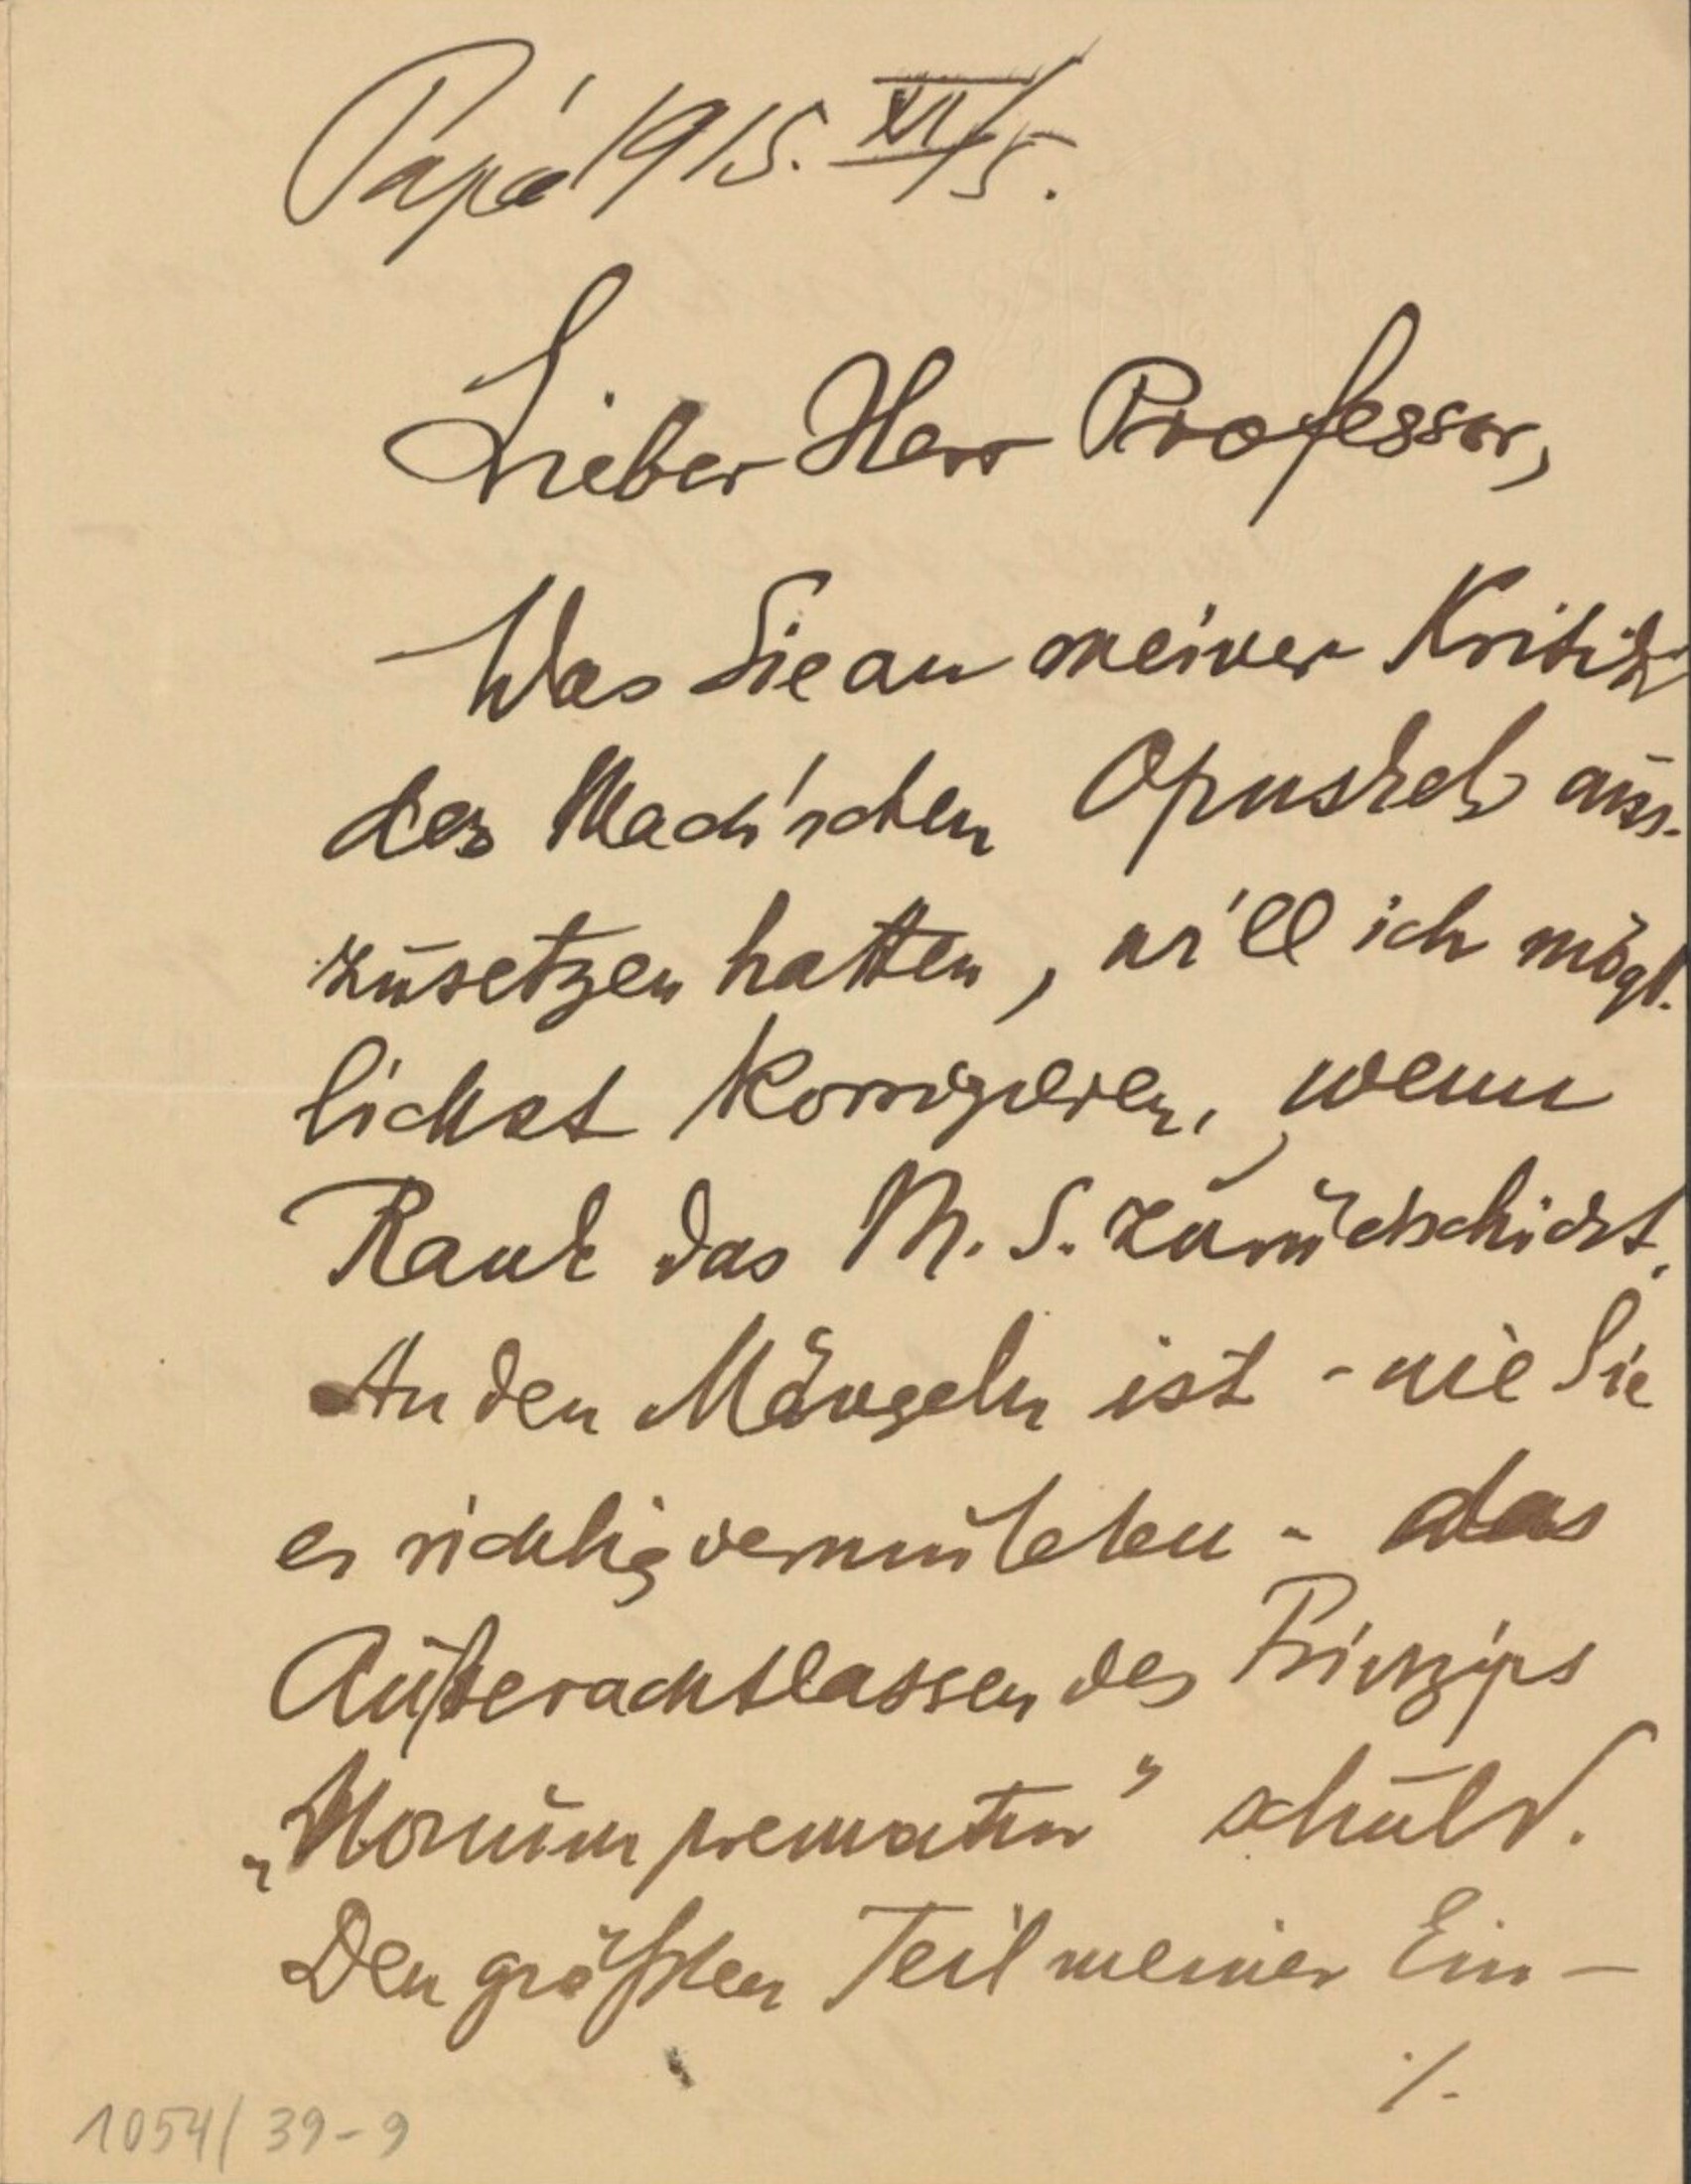 Pápa 1915. XI/5.
Lieber Herr Professor,
Was Sie an meiner Kritik
des Mach'schen Opuskels aus-
zusetzen hatten, will ich mögl-
lichst korrigieren, wenn
Rank das M. S. zurückschickt.
An den Mängeln ist - wie Sie
es richtig vermuteten - das
Außerachtlassen des Prinzips
„Nonum prematur" schuld.
Den größten Teil meiner Ein-
./.
1054/39-9